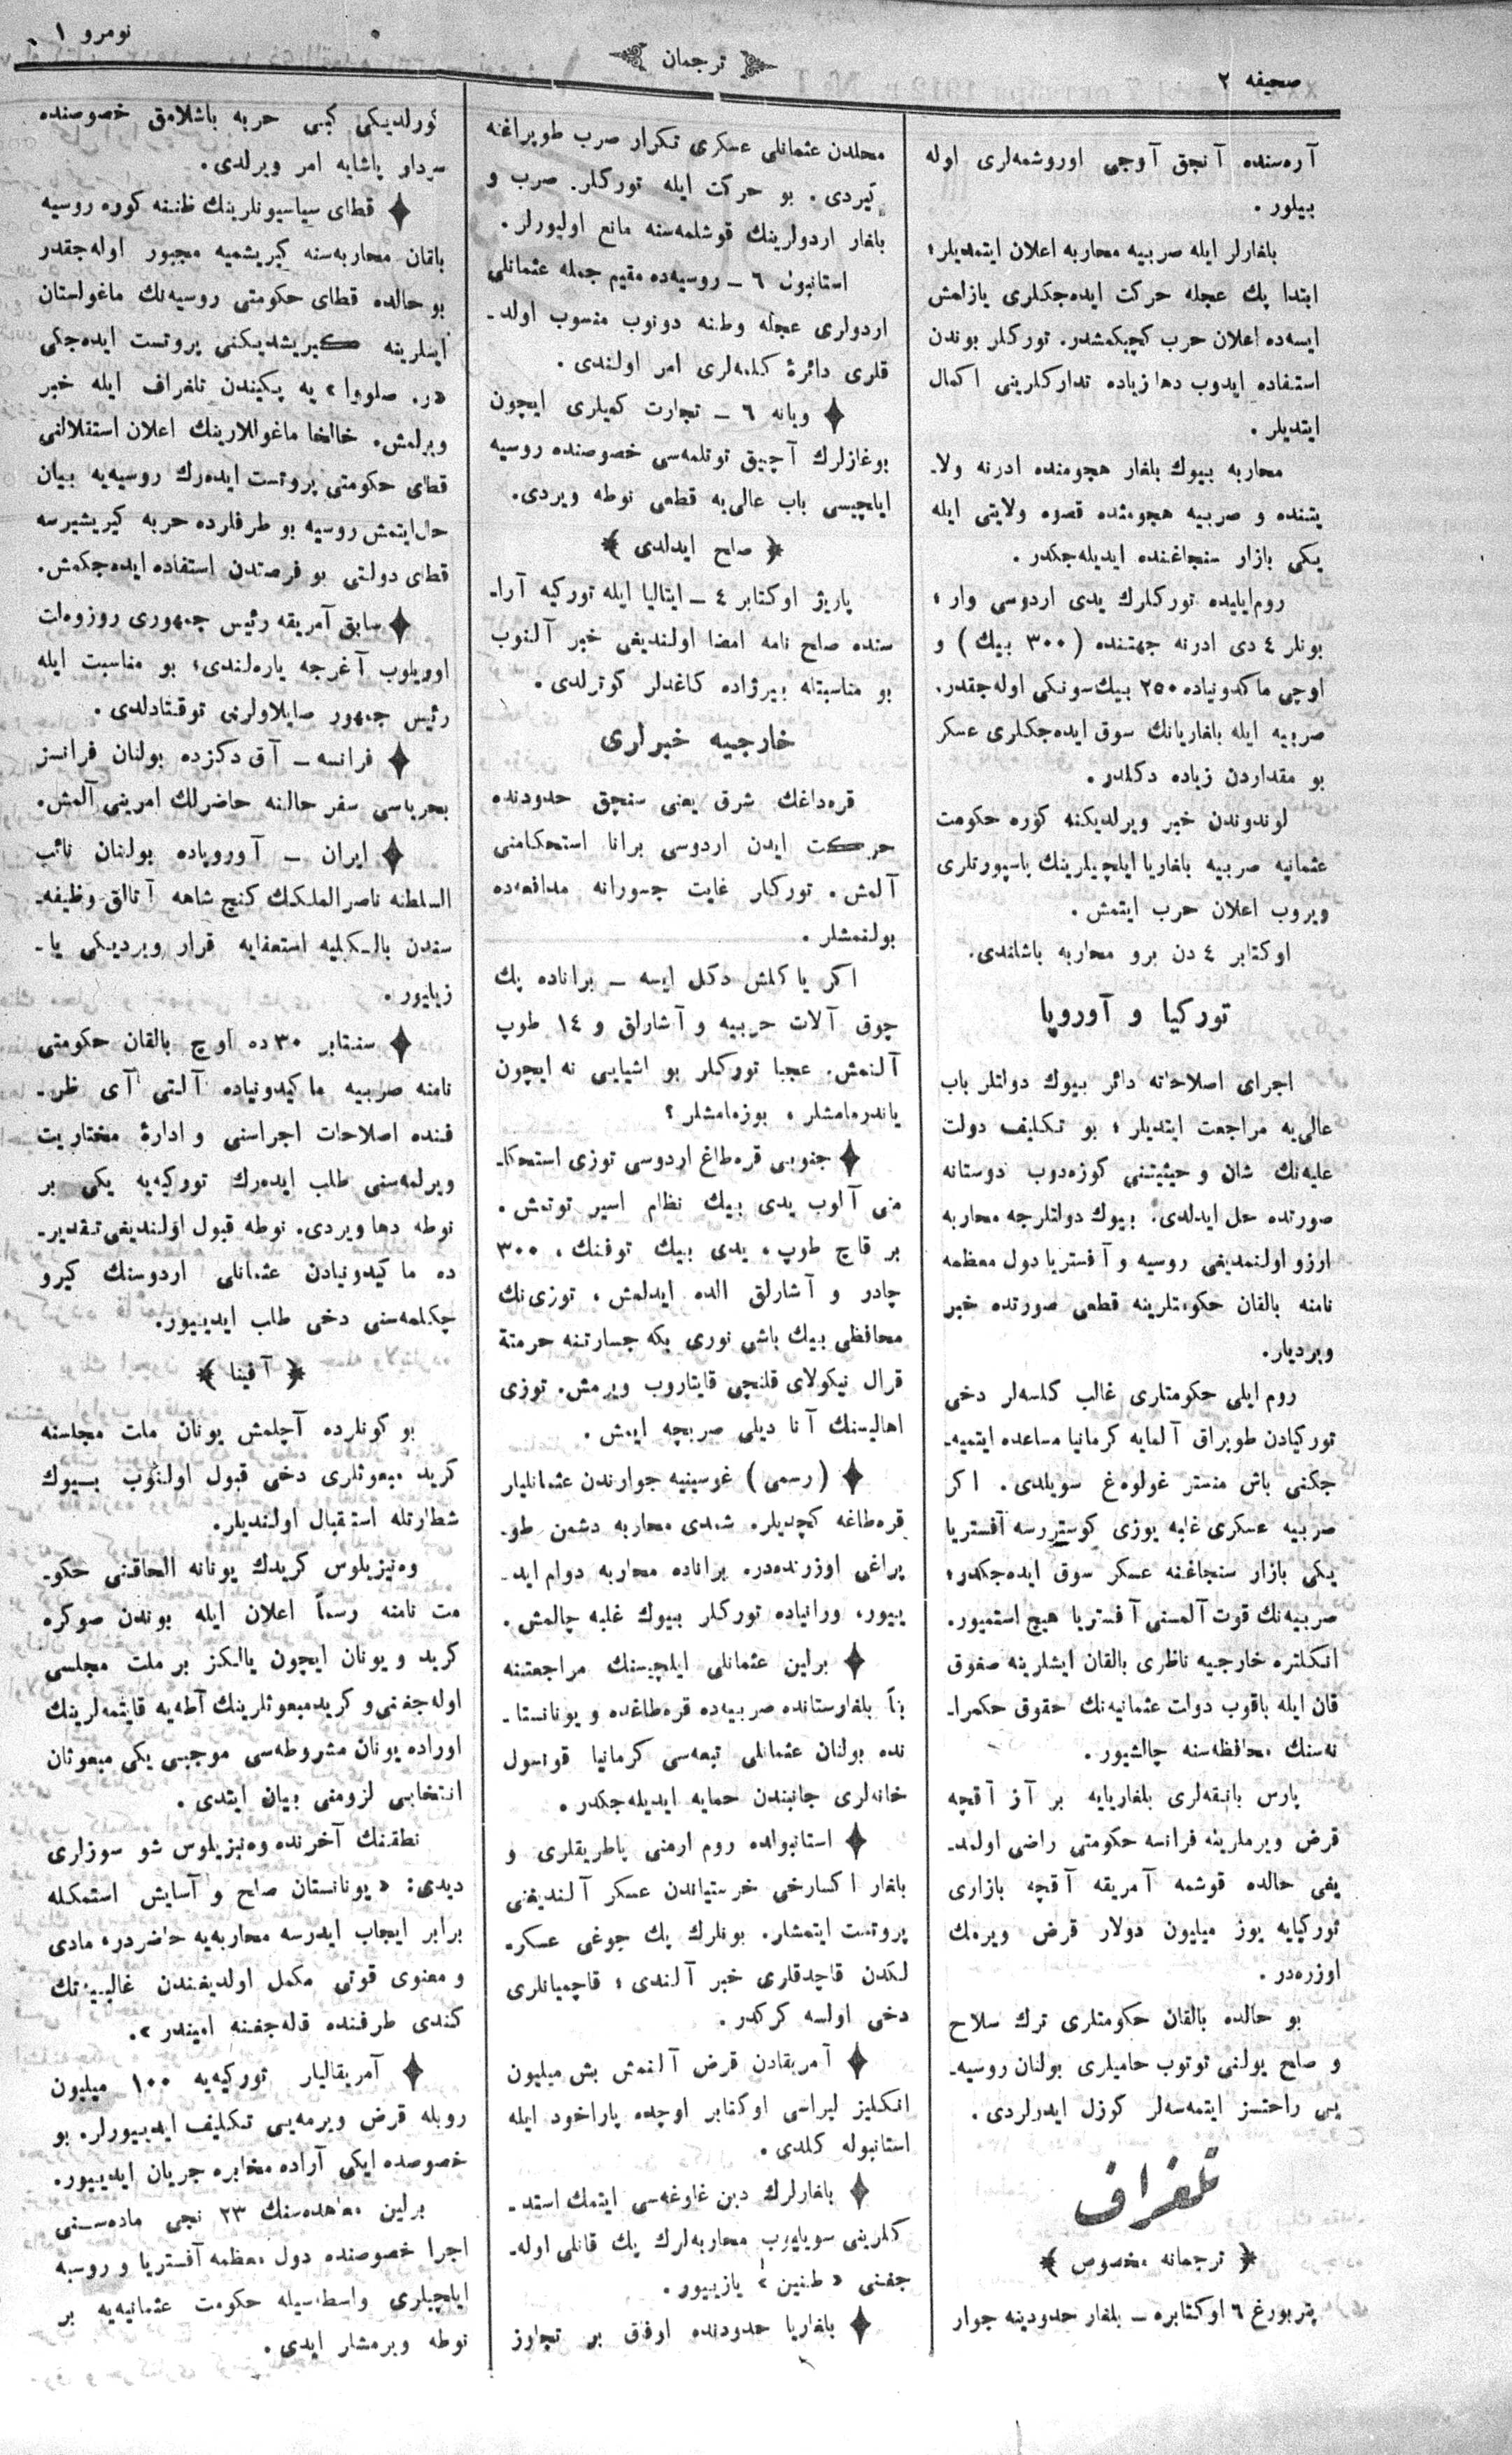 صحیفه ٢
ترجمان
نومرو ١
آره‌سنده آنجق آوجی اوروشمه‌لری اوله
بیلور.
بلغارلر ایله صربیه محاربه اعلان ایتمدیلر؛
ابتدا پك عجله حرکت ایده‌جکلری یازلمش
ایسه‌ده اعلان حرب کچیکمشدر. تورکلر بوندن
استفاده ایدوب دها زیاده تدارکلرینی اکمال
ایتدیلر.
محاربه بیوك بلغار هجومنده ادرنه ولا-
یتنده و صربیه هجومنده قصوه ولایتی ایله
یکی بازار سنجاغنده ایدیله‌جکدر.
روم‌ایلیده تورکلرك یدی اردوسی وار؛
بونلر ٤ دی ادرنه جهتنده (٣٠٠ بیك) و
اوچی ماکدونیاده ٢٥٠ بیك سونکی اوله‌جقدر.
صربیه ایله بلغاریانك سوق ایده‌جکلری عسکر
بو مقداردن زیاده دکلدر.
لوندوندن خبر ویرلدیکنه کوره حکومت
عثمانیه صربیه بلغاریا ایلچیلرینك پاسپورتلری
ویروب اعلان حرب ایتمش.
اوکتابر ٤ دن برو محاربه باشلاندی.
تورکیا و آوروپا
اجرای اصلاحاته دائر بیوك دولتلر باب
عالی‌یه مراجعت ایتدیلر؛ بو تکلیف دولت
علیه‌نك شان و حیثیتنی کوزه‌دوب دوستانه
صورتده حل ایدلدی. بیوك دولتلرجه محاربه
ارزو اولنمدیغی روسیه و آفستریا دول معظمه
نامنه بالقان حکومتلرینه قطعی صورتده خبر
ویردیلر.
روم ایلی حکومتلری غالب کلسه‌لر دخی
تورکیادن طوپراق آلمایه کرمانیا مساعده ایتمیه-
جکنی باش منستر غولوه‌غ سویلدی. اکر
صربیه عسکری غلبه یوزی کوسترسه آفستریا
یکی بازار سنجاغنه عسکر سوق ایده‌جکدر؛
صربیه‌نك قوت آلمسنی آفستریا هیچ استمیور.
انکلتره خارجیه ناظری بالقان ایشلرینه صغوق
قان ایله باقوب دولت عثمانیه‌نك حقوق حکمرا-
نه‌سنك محافظه‌سنه چالشیور.
پارس بانقه‌لری بلغاریایه بر آز آقچه
قرض ویرملرینه فرانسه حکومتی راضی اولمد-
یغی حالده قوشمه آمریقه آقچه بازاری
تورکیایه یوز میلیون دولار قرض ویرمك
اوزره‌در.
بو حالده بالقان حکومتلری ترك سلاح
و صلح یولنی توتوب حامیلری بولنان روسیه-
یی راحتسز ایتمه‌سه‌لر کوزل ایدرلردی.
تلغراف
﴿ ترجمانه مخصوص ﴾
پتربورغ ٦ اوکتابره — بلغار حدودینه جوار
محلدن عثمانلی عسکری تکرار صرب طوپراغنه
کیردی. بو حرکت ایله تورکلر. صرب و
بلغار اردولرینك قوشلمه‌سنه مانع اولیورلر.
استانبول ٦ — روسیه‌ده مقیم جمله عثمانلی
اردولری عجله وطنه دونوب منسوب اولد-
قلری دائرهٔ کلمه‌لری امر اولندی.
ویانه ٦ — تجارت کمیلری ایچون
بوغازلرك آچیق توتلمه‌سی خصوصنده روسیه
ایلچیسی باب عالی‌یه قطعی نوطه ویردی.
﴿ صلح ایدلدی ﴾
پاریژ اوکتابر ٤ — ایتالیا ایله تورکیه آرا-
سنده صلح نامه امضا اولندیغی خبر آلنوب
بو مناسبتله بیرژاده کاغدلر کوترلدی.
خارجیه خبرلری
قره‌داغك شرق یعنی سنجق حدودنده
حرکت ایدن اردوسی برانا استحکامنی
آلمش. تورکلر غایت جسورانه مدافعه‌ده
بولنمشلر.
اکر یاکلمش دکل ایسه — براناده پك
چوق آلات حربیه و آشارلق و ١٤ طوپ
آلنمش. عجبا تورکلر بو اشیایی نه ایچون
یاندرمامشلر، بوزمامشلر؟
جنوبی قره‌طاغ اردوسی توزی استحکا-
منی آلوب یدی بیك نظام اسیر توتمش.
بر قاچ طوپ، یدی بیك توفنك، ٣٠٠
چادر و آشارلق الده ایدلمش، توزی‌نك
محافظی بیك باشی نوری بکه جسارتنه حرمتة
قرال نیکولای قلنجی قایتاروب ویرمش. توزی
اهالیسنك آنا دیلی صربچه ایمش.
(رسمی) غوسینیه جوارندن عثمانلیلر
قره‌طاغه کچدیلر. شمدی محاربه دشمن طو-
پراغی اوزرنده‌در. براناده محاربه دوام اید-
ییور، ورانیاده تورکلر بیوك غلبه چالمش.
برلین عثمانلی ایلچیسنك مراجعتنه
بناً بلغارستانده صربیه‌ده قره‌طاغده و یونانستا-
نده بولنان عثمانلی تبعه‌سی کرمانیا قونسول
خانه‌لری جانبندن حمایه ایدیله‌جکدر.
استانبولده روم ارمنی پاطریقلری و
بلغار اکسارخی خرستیاندن عسکر آلندیغنی
پروتست ایتمشلر. بونلرك پك چوغی عسکر-
لکدن قاچدقلری خبر آلندی؛ قاچمیانلری
دخی اولسه کرکدر.
آمریقادن قرض آلنمش بش میلیون
انکلیز لیراسی اوکتابر اوچده پاراخود ایله
استانبوله کلدی.
بلغارلرك دین غاوغه‌سی ایتمك استد-
کلرینی سویلیوب محاربه‌لرك پك قانلی اوله-
جغنی «طنین» یازییور.
بلغاریا حدودنده اوفاق بر تجاوز
کورلدیکی کبی حربه باشلامق خصوصنده
سردار پاشایه امر ویرلدی.
قطای سیاسیونلرینك ظننه کوره روسیه
بالقان محاربه‌سنه کیریشمیه مجبور اوله‌جقدر
بو حالده قطای حکومتی روسیه‌نك ماغولستان
ایشلرینه کیریشدیکنی پروتست ایده‌جکی
«ر. صلووا» یه پکیندن تلغراف ایله خبر
ویرلمش. خالخا ماغوللارینك اعلان استقلالنی
قطای حکومتی پروتست ایده‌رك روسیه‌یه بیان
حل‌ایتمش روسیه بو طرفلرده حربه کیریشیرسه
قطای دولتی بو فرصتدن استفاده ایده‌جکمش.
سابق آمریقه رئیس جمهوری روزوه‌لت
اوریلوب آغرجه یاره‌لندی؛ بو مناسبت ایله
رئیس جمهور صایلاولرنی توقتادلدی.
فرانسه — آق دکزده بولنان فرانسز
بحریاسی سفر حالنه حاضرلك امرینی آلمش.
ایران — آوروپاده بولنان نائب
السلطنه ناصرالملکك کنج شاهه آتالق وظیفه-
سندن بالکلیه استعفایه قرار ویردیکی یا-
زیلیور.
سنتابر ٣٠ ده اوچ بالقان حکومتی
نامنه صربیه ماکیدونیاده آلتی آی ظر-
فنده اصلاحات اجراسنی و ادارهٔ مختاریت
ویرلمه‌سنی طلب ایده‌رك تورکیه‌یه یکی بر
نوطه دها ویردی. نوطه قبول اولندیغی تقدیر-
ده ماکیدونیادن عثمانلی اردوسنك کیرو
چکلمه‌سنی دخی طلب ایدییور.
﴿ آفینا ﴾
بو کونلرده آچلمش یونان ملت مجلسنه
کرید مبعوثلری دخی قبول اولنوب بیوك
شطارتله استقبال اولندیلر.
وه‌نیزیلوس کریدك یونانه الحاقنی حکو-
مت نامنه رسماً اعلان ایله بوندن صوکره
کرید و یونان ایچون یالکز بر ملت مجلسی
اوله‌جغنی و کرید مبعوثلرینك آطه‌یه قایتمه‌لرینك
اوراده یونان مشروطه‌سی موجبی یکی مبعوثان
انتخابی لزومنی بیان ایتدی.
نطقنك آخرنده وه‌نیزیلوس شو سوزلری
دیدی: «یونانستان صلح و آسایش استمکله
برابر ایجاب ایدرسه محاربه‌یه حاضردر، مادی
و معنوی قوتی مکمل اولدیغندن غالبیتك
کندی طرفنده قله‌جغنه امیندر».
آمریقالیلر تورکیه‌یه ١٠٠ میلیون
روبله قرض ویرمه‌یی تکلیف ایدییورلر. بو
خصوصده ایکی آراده مخابره جریان ایدییور.
برلین معاهده‌سنك ٢٣ نجی ماده‌سنی
اجرا خصوصنده دول معظمه آفستریا و روسیه
ایلچیلری واسطه‌سیله حکومت عثمانیه‌یه بر
نوطه ویرمشلر ایدی.